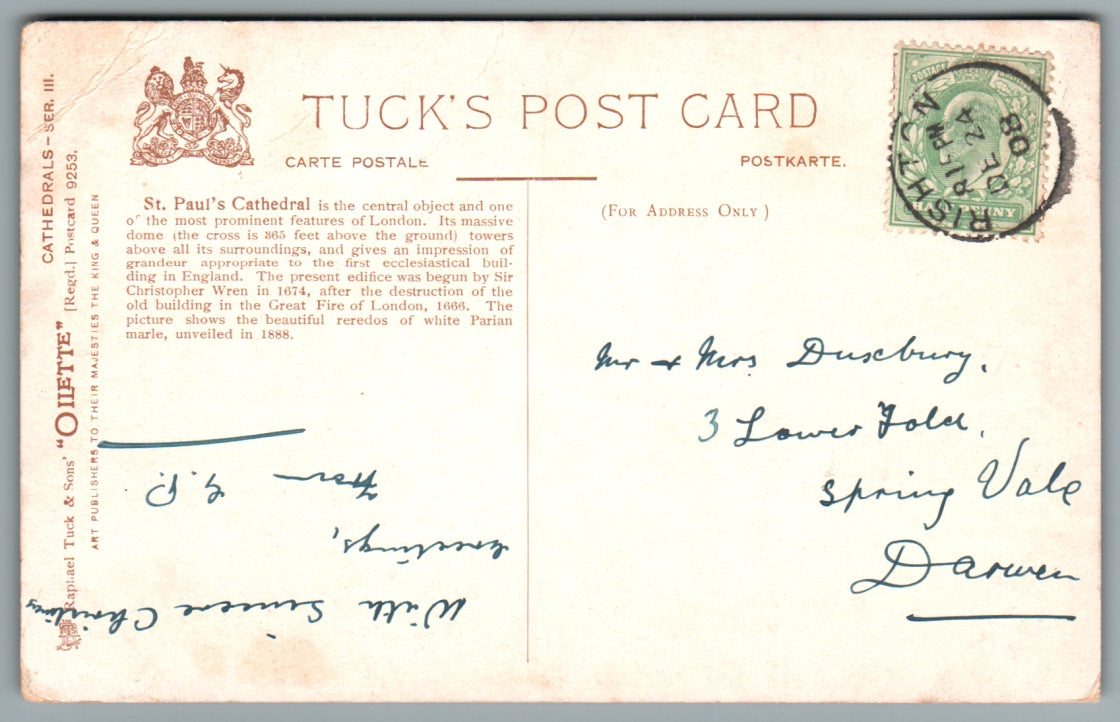 TUCK'S POST CARD
CARTE POSTALE
POSTKARTE.
(FOR ADDRESS ONLY)
CATHEDRALS – SER. III.
Raphael Tuck & Sons' "OILETTE" [Regd.] Postcard 9253.
ART PUBLISHERS TO THEIR MAJESTIES THE KING & QUEEN
St. Paul's Cathedral is the central object and one
of the most prominent features of London. Its massive
dome (the cross is 365 feet above the ground) towers
above all its surroundings, and gives an impression of
grandeur appropriate to the first ecclesiastical buil-
ding in England. The present edifice was begun by Sir
Christopher Wren in 1674, after the destruction of the
old building in the Great Fire of London, 1666. The
picture shows the beautiful reredos of white Parian
marle, unveiled in 1888.
POSTAGE
HALFPENNY
RISHTON
PM
DE 24
08
Mr & Mrs Duxbury.
3 Lower Fold.
Spring Vale
Darwen
With Sincere Christmas
Greetings,
From
G.P.